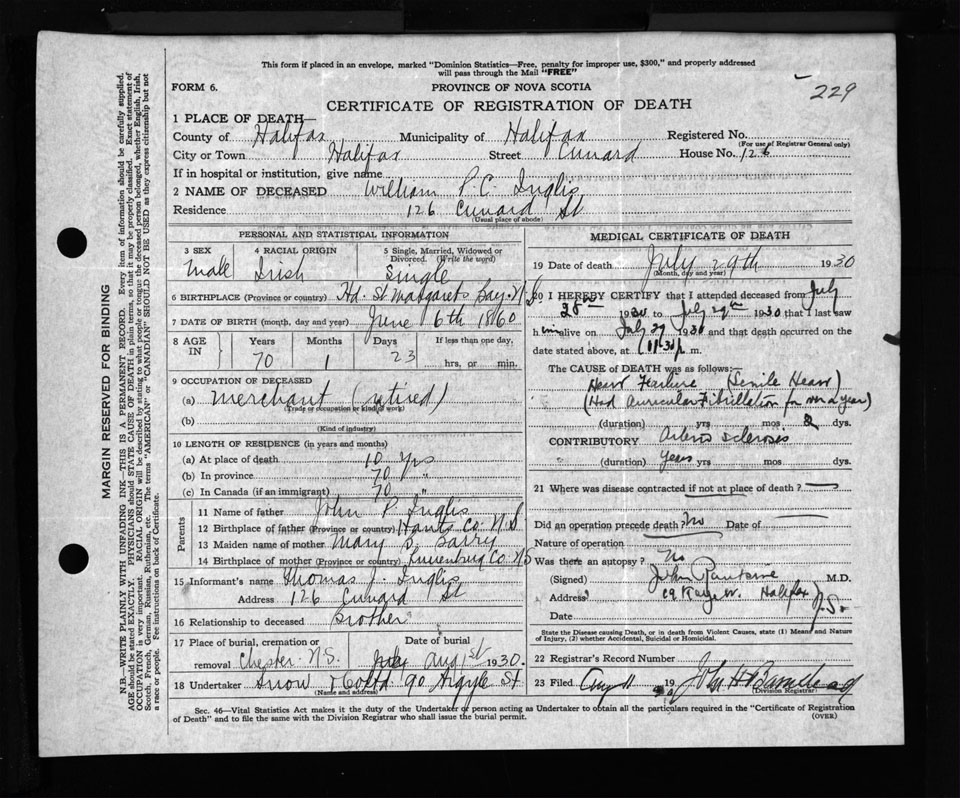 This form if placed in an envelope, marked "Dominion Statistics—Free, penalty for improper use, $300," and properly addressed
will pass through the Mail "FREE"
FORM 6. PROVINCE OF NOVA SCOTIA 229
CERTIFICATE OF REGISTRATION OF DEATH
1 PLACE OF DEATH—
County of Halifax Municipality of Halifax Registered No.
(For use of Registrar General only)
City or Town Halifax Street Cunard House No. 126
If in hospital or institution, give name
2 NAME OF DECEASED William P. C. Inglis
Residence 126 Cunard St
(Usual place of abode)
PERSONAL AND STATISTICAL INFORMATION
3 SEX 4 RACIAL ORIGIN 5 Single, Married, Widowed or
Divorced. (Write the word)
Male Irish Single
6 BIRTHPLACE (Province or country) Hd. St Margarets Bay N.S
7 DATE OF BIRTH (month, day and year) June 6th 1860
8 AGE IN Years Months Days If less than one day,
70 1 23 hrs. or min.
9 OCCUPATION OF DECEASED
(a) Merchant (retired)
(Trade or occupation or kind of work)
(b)
(Kind of industry)
10 LENGTH OF RESIDENCE (in years and months)
(a) At place of death 10 yrs
(b) In province 70 "
(c) In Canada (if an immigrant) 70 "
Parents
11 Name of father John P. Inglis
12 Birthplace of father (Province or country) Hants Co N.S
13 Maiden name of mother Mary S. Barry
14 Birthplace of mother (Province or country) Lunenburg Co N.S
15 Informant's name Thomas J. Inglis
Address 126 Cunard St
16 Relationship to deceased Brother
17 Place of burial, cremation or Date of burial
removal Chester N.S. Aug 1st 1930.
18 Undertaker Snow 90 Argyle St
(Name and address)
MEDICAL CERTIFICATE OF DEATH
19 Date of death July 29th 1930
(Month, day and year)
20 I HEREBY CERTIFY that I attended deceased from July
28th 1930 to July 29th 1930 that I last saw
him alive on July 29 1930 and that death occurred on the
date stated above, at 11.30 p m.
The CAUSE of DEATH was as follows:—
Heart Failure (Senile Heart)
(Had Auricular Fibrillation for over a year)
(duration) yrs mos. 2 dys.
CONTRIBUTORY Arterio Sclerosis
(duration) Years yrs mos dys.
21 Where was disease contracted if not at place of death?
Did an operation precede death? No Date of
Nature of operation
Was there an autopsy? No
(Signed) John M.D.
Address Halifax N.S.
Date
State the Disease causing Death, or in death from Violent Causes, state (1) Means and Nature
of Injury, (2) whether Accidental, Suicidal or Homicidal.
22 Registrar's Record Number
23 Filed Aug 11 19 John H
(Division Registrar)
Sec. 46—Vital Statistics Act makes it the duty of the Undertaker or person acting as Undertaker to obtain all the particulars required in the "Certificate of Registration
of Death" and to file the same with the Division Registrar who shall issue the burial permit. (OVER)
MARGIN RESERVED FOR BINDING
N.B.—WRITE PLAINLY WITH UNFADING INK—THIS IS A PERMANENT RECORD. Every item of information should be carefully supplied.
AGE should be stated EXACTLY. PHYSICIANS should STATE CAUSE OF DEATH in plain terms, so that it may be properly classified. Exact statement of
OCCUPATION is very important. RACIAL ORIGIN will be described by stating to what people or tongue the deceased person belonged, whether English, Irish,
Scotch, French, German, Russian, Ruthenian, etc. The terms "AMERICAN" or "CANADIAN" SHOULD NOT BE USED as they express citizenship but not
a race or people. See instructions on back of Certificate.